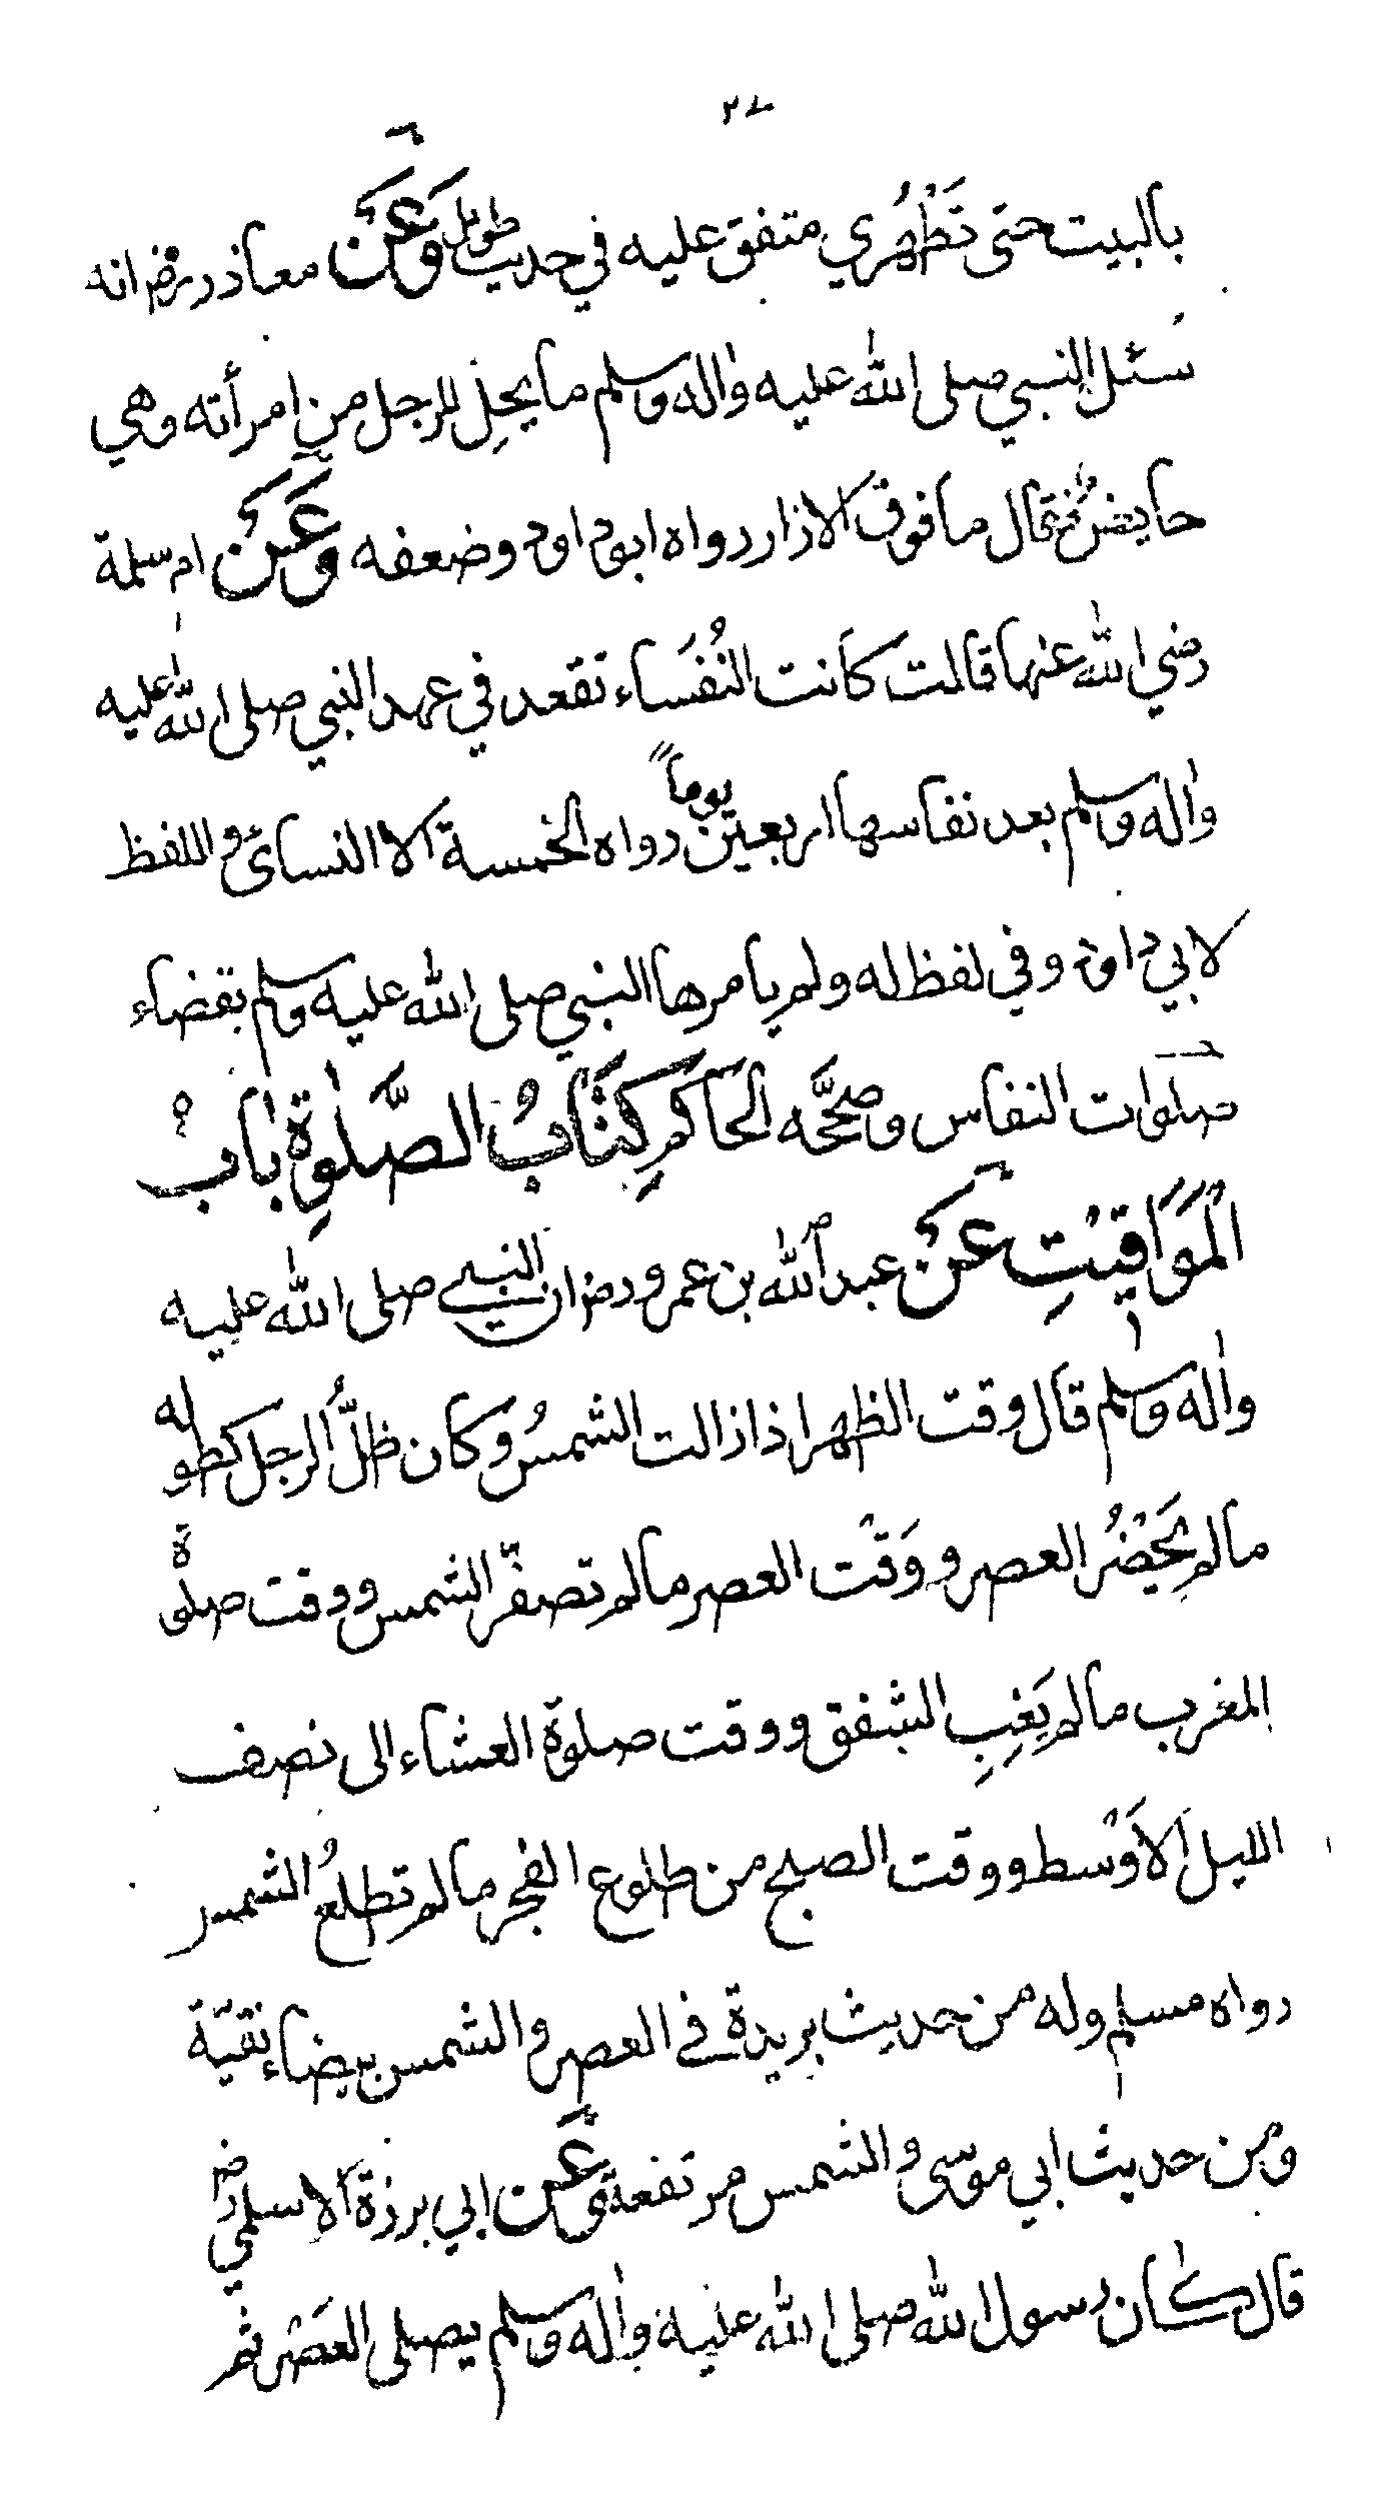 ٢٧
بالبيت حتى تَطْهُري متفق عليه في حديث طويل وَعَنْ معاذ رضي انه
سئل النبي صلى الله عليه واٰله وسلم ما يحِل للرجل من امرأته وهي
حايضٌ فقال ما فوق الازار رواه ابو داود وضعفه وَعَنْ ام سلمة
رضي الله عنها قالت كانت النُفَساء تقعد في عهد النبي صلى الله عليه
واٰله وسلم بعد نفاسها اربعين يوماً رواه الخمسة الا النسائ واللفظ
لابي داود وفي لفظ له ولم يأمرها النبي صلى الله عليه وسلم بقضاء
صلوات النفاس وصحَّحه الحاكم كِتَابُ الصَّلٰوةِ بَابُ
الْمَوَاقِيْتِ عَنْ عبد الله بن عمرو رض ان النبي صلى الله عليه
واٰله وسلم قال وقت الظهر اذا زالت الشمسُ وكان ظلُّ الرجل كطوله
ما لم يَحْضُر العصر ووَقْت العصر ما لم تصفرّ الشمس ووقت صلوة
المغرب ما لم يَغِبِ الشفق ووقت صلوة العشاء الى نصف
الليل الاَوْسط ووقت الصبح من طلوع الفجر ما لم تطلعُ الشمس
رواه مسلم وله من حديث بريدة في العصر والشمس بيضاء نقيّة
ومن حديث ابي موسى والشمس مرتفعة وَعَن ابي برزة الاسلمي رض
قال كان رسول الله صلى الله عليه واٰله وسلم يصلى العَصْر ثم